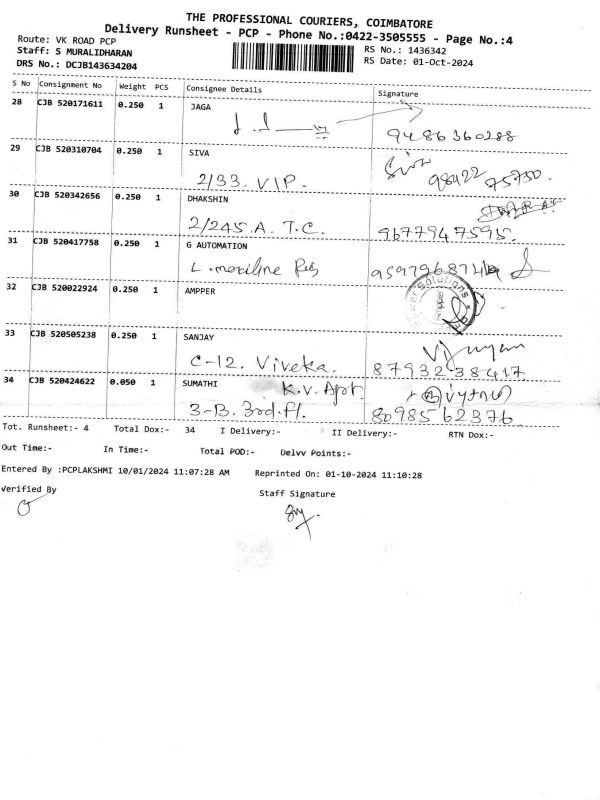 THE PROFESSIONAL COURIERS, COIMBATORE
Delivery Runsheet - PCP - Phone No.:0422-3505555 - Page No.:4
Route: VK ROAD PCP RS No.: 1436342
Staff: S MURALIDHARAN RS Date: 01-Oct-2024
DRS No.: DCJB143634204
S No Consignment No Weight PCS Consignee Details Signature
28 CJB 520171611 0.250 1 JAGA
9486360288
29 CJB 520310704 0.250 1 SIVA Siva
2/33. VIP. 98422 75750.
30 CJB 520342656 0.250 1 DHAKSHIN
2/245.A. T.C. 9677947595.
31 CJB 520417758 0.250 1 G AUTOMATION
32 CJB 520022924 0.250 1 AMPPER
Power Solutions
33 CJB 520505238 0.250 1 SANJAY
C-12. Viveka. 87932 38417
34 CJB 520424622 0.050 1 SUMATHI K.V. Apt.
3-B. 3rd.fl. 8098562376
Tot. Runsheet:- 4 Total Dox:- 34 I Delivery:- II Delivery:- RTN Dox:-
Out Time:- In Time:- Total POD:- Delvv Points:-
Entered By :PCPLAKSHMI 10/01/2024 11:07:28 AM Reprinted On: 01-10-2024 11:10:28
Verified By Staff Signature